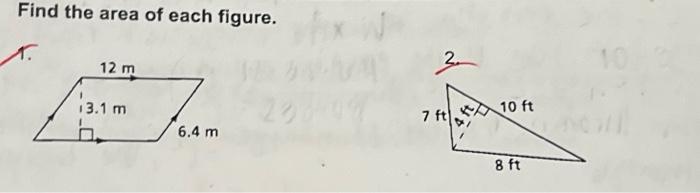 Find the area of each figure.
1.
12 m
3.1 m
6.4 m
2.
7 ft
4 ft
10 ft
8 ft